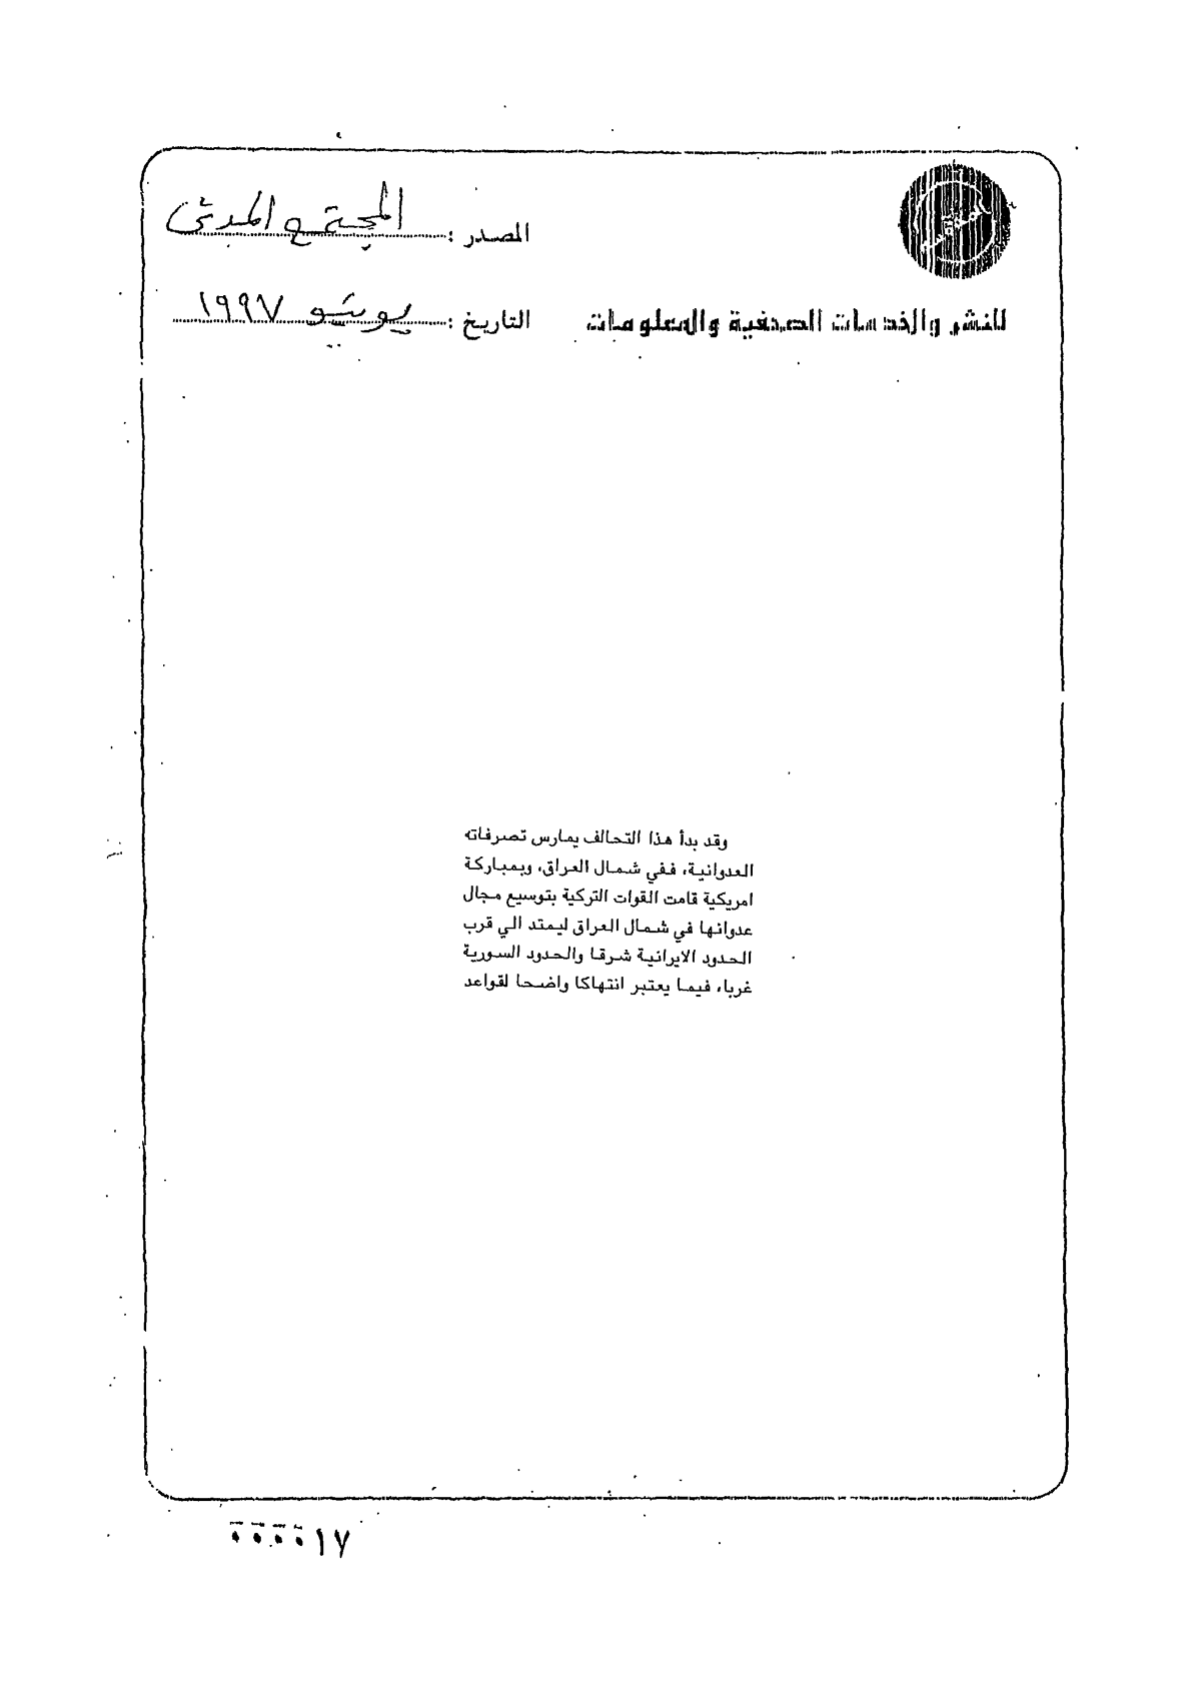 المصدر : المجتمع المدنى
للنشر والخدمات الصحفية والمعلومات
التاريخ : يونيو ١٩٩٧
وقد بدأ هذا التحالف يمارس تصرفاته
العدوانية، ففي شمال العراق، وبمباركة
امريكية قامت القوات التركية بتوسيع مجال
عدوانها في شمال العراق ليمتد الي قرب
الحدود الايرانية شرقا والحدود السورية
غربا، فيما يعتبر انتهاكا واضحا لقواعد
٠٠٠٠١٧